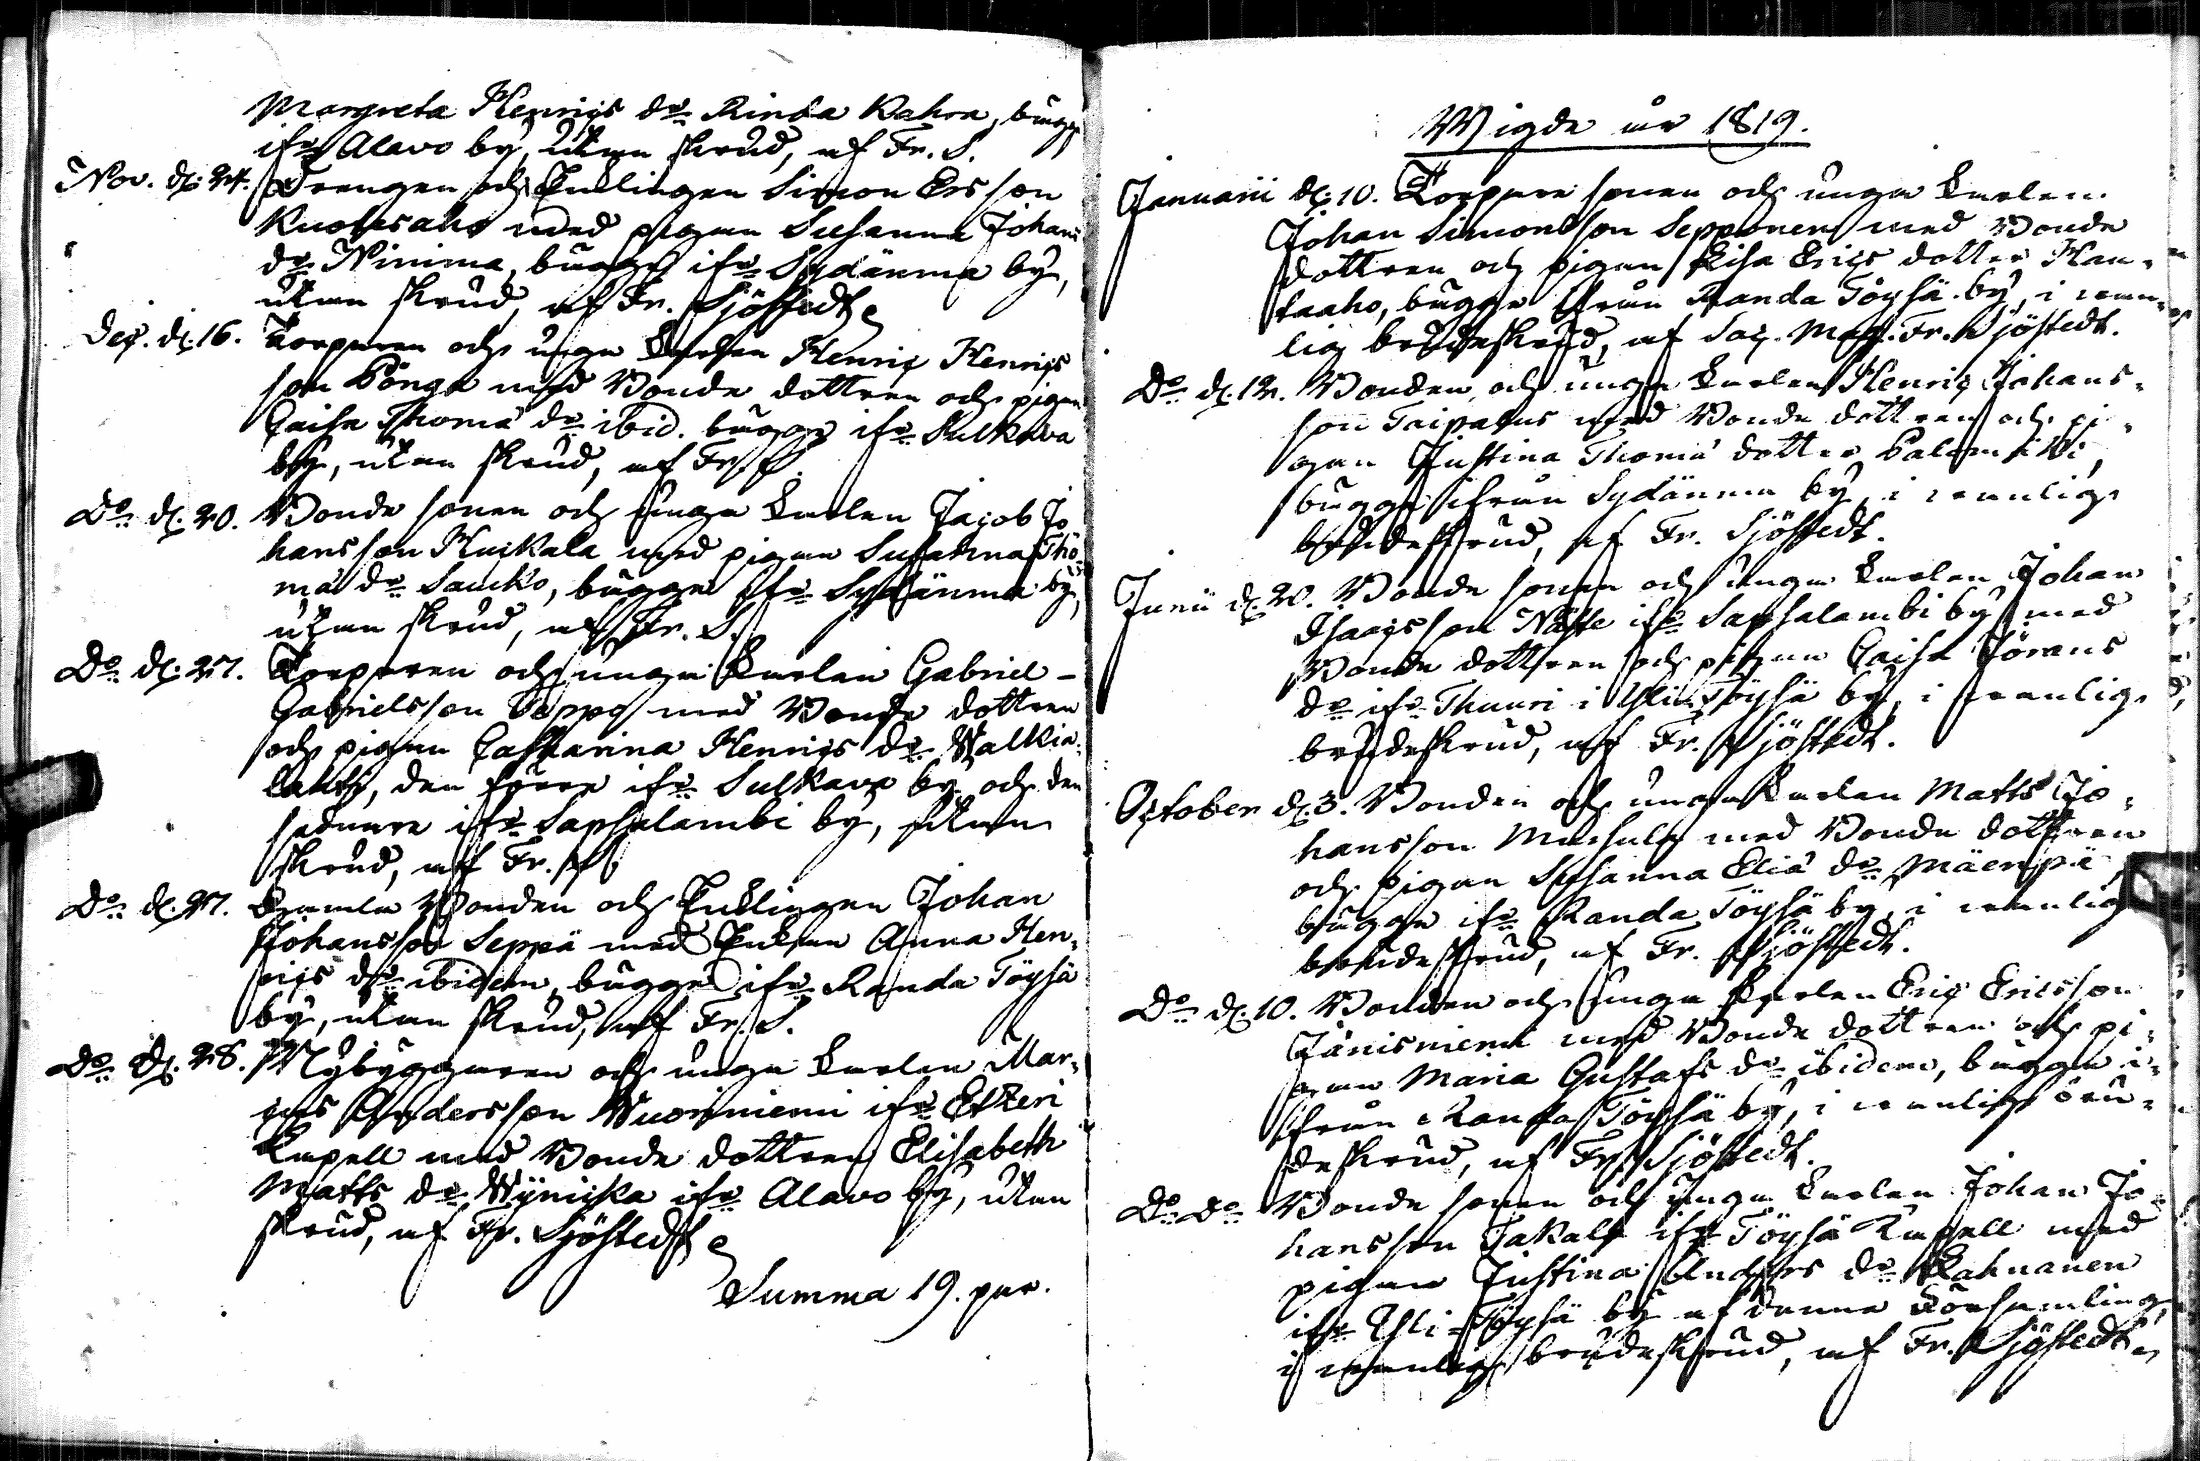 Margreta Henrics dr Rinda Kahra, bägge
ifr. Alavo by, utan skrud, af Fr. S.
Nov. d. 24. Drengen och Enklingen Simon Ersson
Kuotesaho med pigan Susanna Johans
dr Niinima, bägge ifr. Sydänma by,
utan skrud, af Fr. Sjöstedt
Dec. d. 16. Torparen och unga Karlen Henric Henrics
son Pönga med Bonde dottren och pigan
Caisa Thomæ dr ibid. bägge ifr. Sulkava
by, utan skrud, af Fr. S.
Do d. 20. Bonde sonen och unga Karlen Jacob Jo
hansson Huikala med pigan Susanna Tho
mæ dr Sauko, bägge ifr. Sydänma by,
utan skrud, af Fr. S.
Do d. 27. Torparen och unga Karlen Gabriel
Gabrielsson Seppo med Bonde dottren
och pigan Catharina Henrics dr Walkia-
lahti, den förre ifr. Sulkava by och den
sednare ifr. Sapsalambi by, utan
skrud, af Fr. S.
Do d. 27. Gamla Bonden och Enklingen Johan
Johansson Seppä med Enkan Anna Hen-
rics dr ibidem, bägge ifr. Randa Töysä
by, utan skrud, af Fr. S.
Do d. 28. Nybyggaren och unga Karlen Mar-
cus Andersson Wuoriniemi ifr. Etzeri
Kapell med Bonde dottren Elisabeth
Matts dr ifr. Alavo by, utan
skrud, af Fr. Sjöstedt
Summa 19. par.
Wigde år 1819.
Januarii d. 10. Torpare sonen och unga Karlen
Johan Simonsson Sepponen med Bonde
dottren och pigan Lisa Erics dotter Han-
kaaho, bägge från Randa Töysä by, i ärm-
lig brudeskrud, af Sac. Mag. Fr. Sjöstedt.
Do d. 12. Bonden och unga Karlen Henric Johans-
son Taipalus med Bonde dottren och pi-
gan Justina Thomæ dotter Palomäki,
bägge ifrån Sydänma by, i ärmlig
brudeskrud, af Fr. Sjöstedt.
Junii d. 20. Bonde sonen och unga Karlen Johan
Isacsson Nässe ifr. Sapsalambi by med
Bonde dottren och pigan Caisa Görans
dr ifr. Thuuri i Yli-Töysä by, i ärmlig
brudeskrud, af Fr. Sjöstedt.
October d. 3. Bonden och unga Karlen Matts Jo-
hansson med Bonde dottren
och pigan Susanna Eliæ dr Mäenpä,
bägge ifr. Randa Töysä by, i ärmlig
brudeskrud, af Fr. Sjöstedt.
Do d. 10. Bonden och unga Karlen Eric Ericsson
Jänisniemi med Bonde dottren och pi-
gan Maria Gustafs dr ibidem, bägge i-
från Randa Töysä by, i ärmlig bru-
deskrud, af Fr. Sjöstedt.
Do Do Bonde sonen och unga Karlen Johan Jo
hansson Jakala ifr. Töysä Kapell med
pigan Justina Anders dr Kahnanen
ifr. Yli-Töysä by af denna Församling,
i ärmlig brudeskrud, af Fr. Sjöstedt